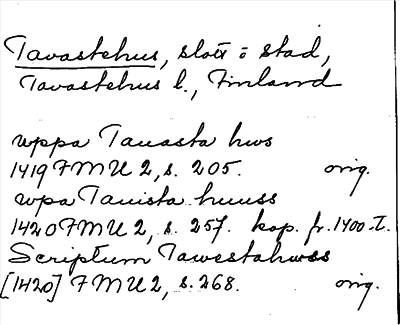 Tavastehus, slott o stad,
Tavastehus l., Finland
uppa Tauasta hws
1419 FMU 2, s. 205. orig.
wpa Tauista huuss
1420 FMU 2, s. 257. kop. fr. 1400-t.
Scriptum Tawestahwss
[1420] FMU 2, s. 268. orig.